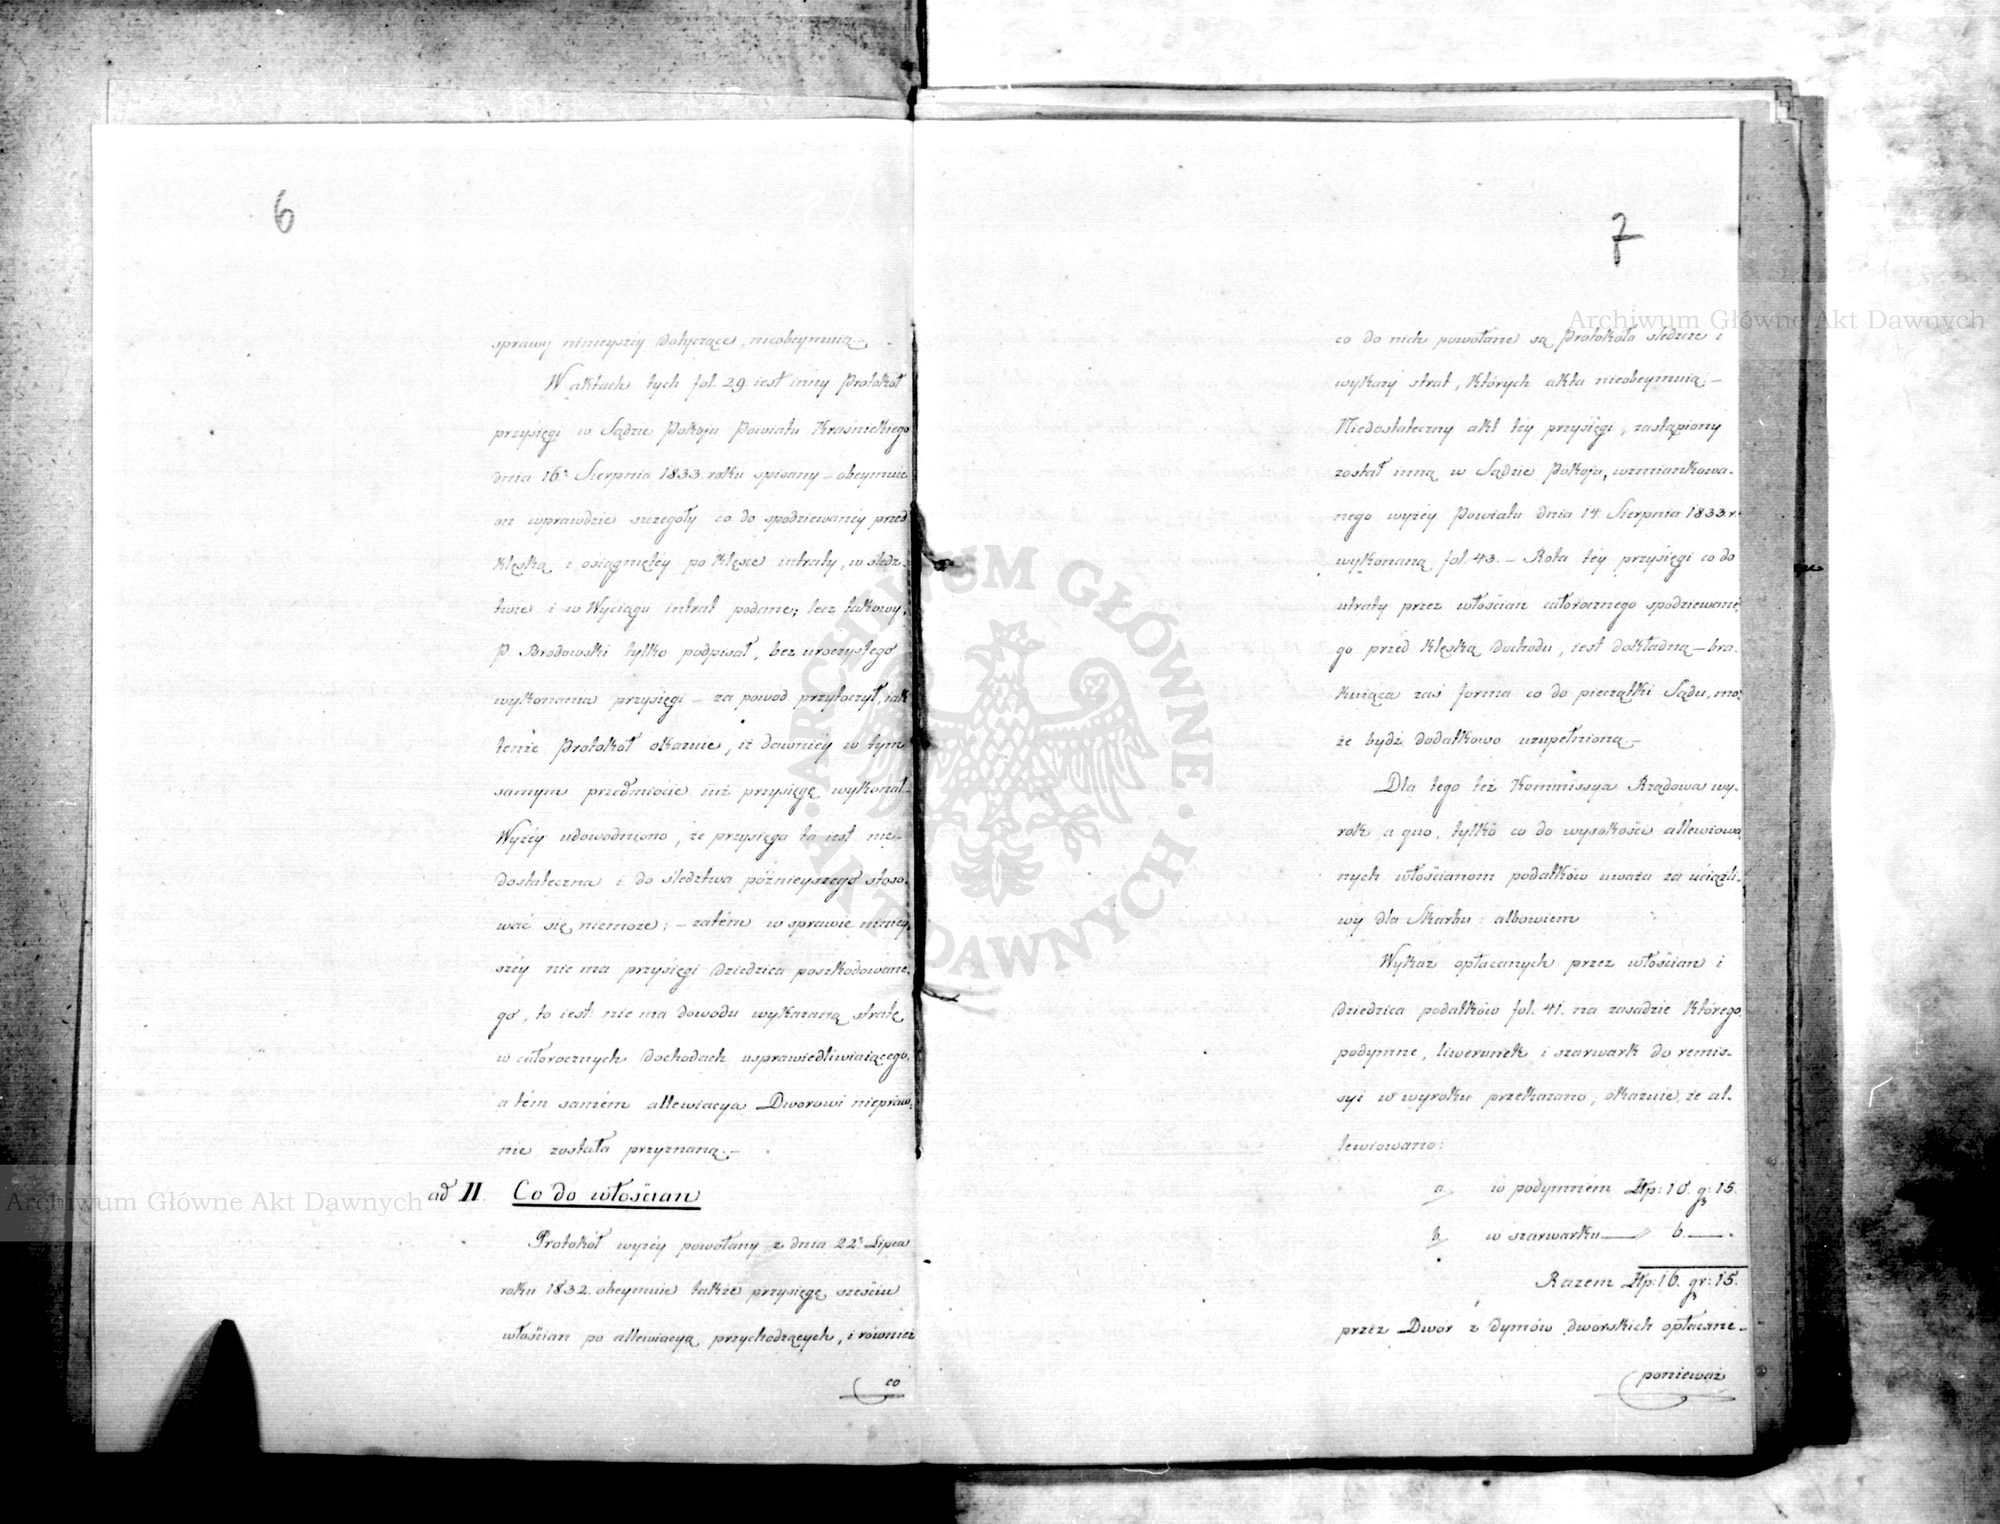 6
sprawy ninieyszéy dotyczące, nieobeymuią.—
W aktach tych fol. 29. iest inny Protokół
przysięgi w Sądzie Pokoju Powiatu Kraśnickiego
dnia 16º Sierpnia 1833. roku spisany – obeymuie
on wprawdzie szczegóły co do spodziewanéy przed
klęską i osiągniętéy po klęsce intraty, w śledz:
twie i w Wyciągu intrat podane; lecz takowy,
P. Brodowski tylko podpisał, bez uroczystego
wykonania przysięgi – za powod przytoczył, iak
tenże Protokół okazuie, iż dawniéy w tym
samym przedmiocie iuż przysięgę wykonał.–
Wyżéy udowodniono, że przysięga ta iest nie-
dostateczna i do śledztwa późnieyszego stoso-
wać się niemoże; – zatém w sprawie niniey-
széy nie ma przysięgi dziedzica poszkodowane-
go, to iest: nie ma dowodu wykazaną stratę
w całorocznych dochodach usprawiedliwiaiącego,
a tém samém allewiacya Dworowi niepraw:
nie została przyznaną.–
ad II. Co do włościan
Protokół wyżéy powołany z dnia 22º Lipca
roku 1832. obeymuie także przysięgę sześciu
włościan po allewiacyą przychodzących, i również
co
7
co do nich powołane są Protokoło śledcze i
wykazy strat, których akta nieobeymuią.–
Niedostateczny akt téy przysięgi, zastąpiony
został inną w Sądzie Pokoju, wzmiankowa-
nego wyżéy Powiatu dnia 14. Sierpnia 1833 r.
wykonaną fol. 43. – Rota téy przysięgi co do
utraty przez włościan całorocznego spodziewane
go przed klęską dochodu, iest dokładną – bra-
kuiąca zaś forma co do pieczątki Sądu, mo:
że bydź dodatkowo uzupełnioną.–
Dla tego też Kommissya Rządowa wy-
rok a quo, tylko co do wysokości allewiowa
nych włościanom podatków uważa za uciążli-
wy dla Skarbu: albowiem
Wykaz opłacanych przez włościan i
dziedzica podatków fol. 41. na zasadzie którego
podymne, liwerunek i szarwark do remis-
syi w wyroku przekazano, okazuie, że al-
lewiowano:
a, w podymném Złp: 10. g: 15.
b, w szarwarku — „ 6. — .
Razem Złp: 16. gr: 15.
przez Dwór z dymów dworskich opłacane–
ponieważ
Archiwum Główne Akt Dawnych
Archiwum Główne Akt Dawnych
ARCHIWUM GŁÓWNE · AKT DAWNYCH ·